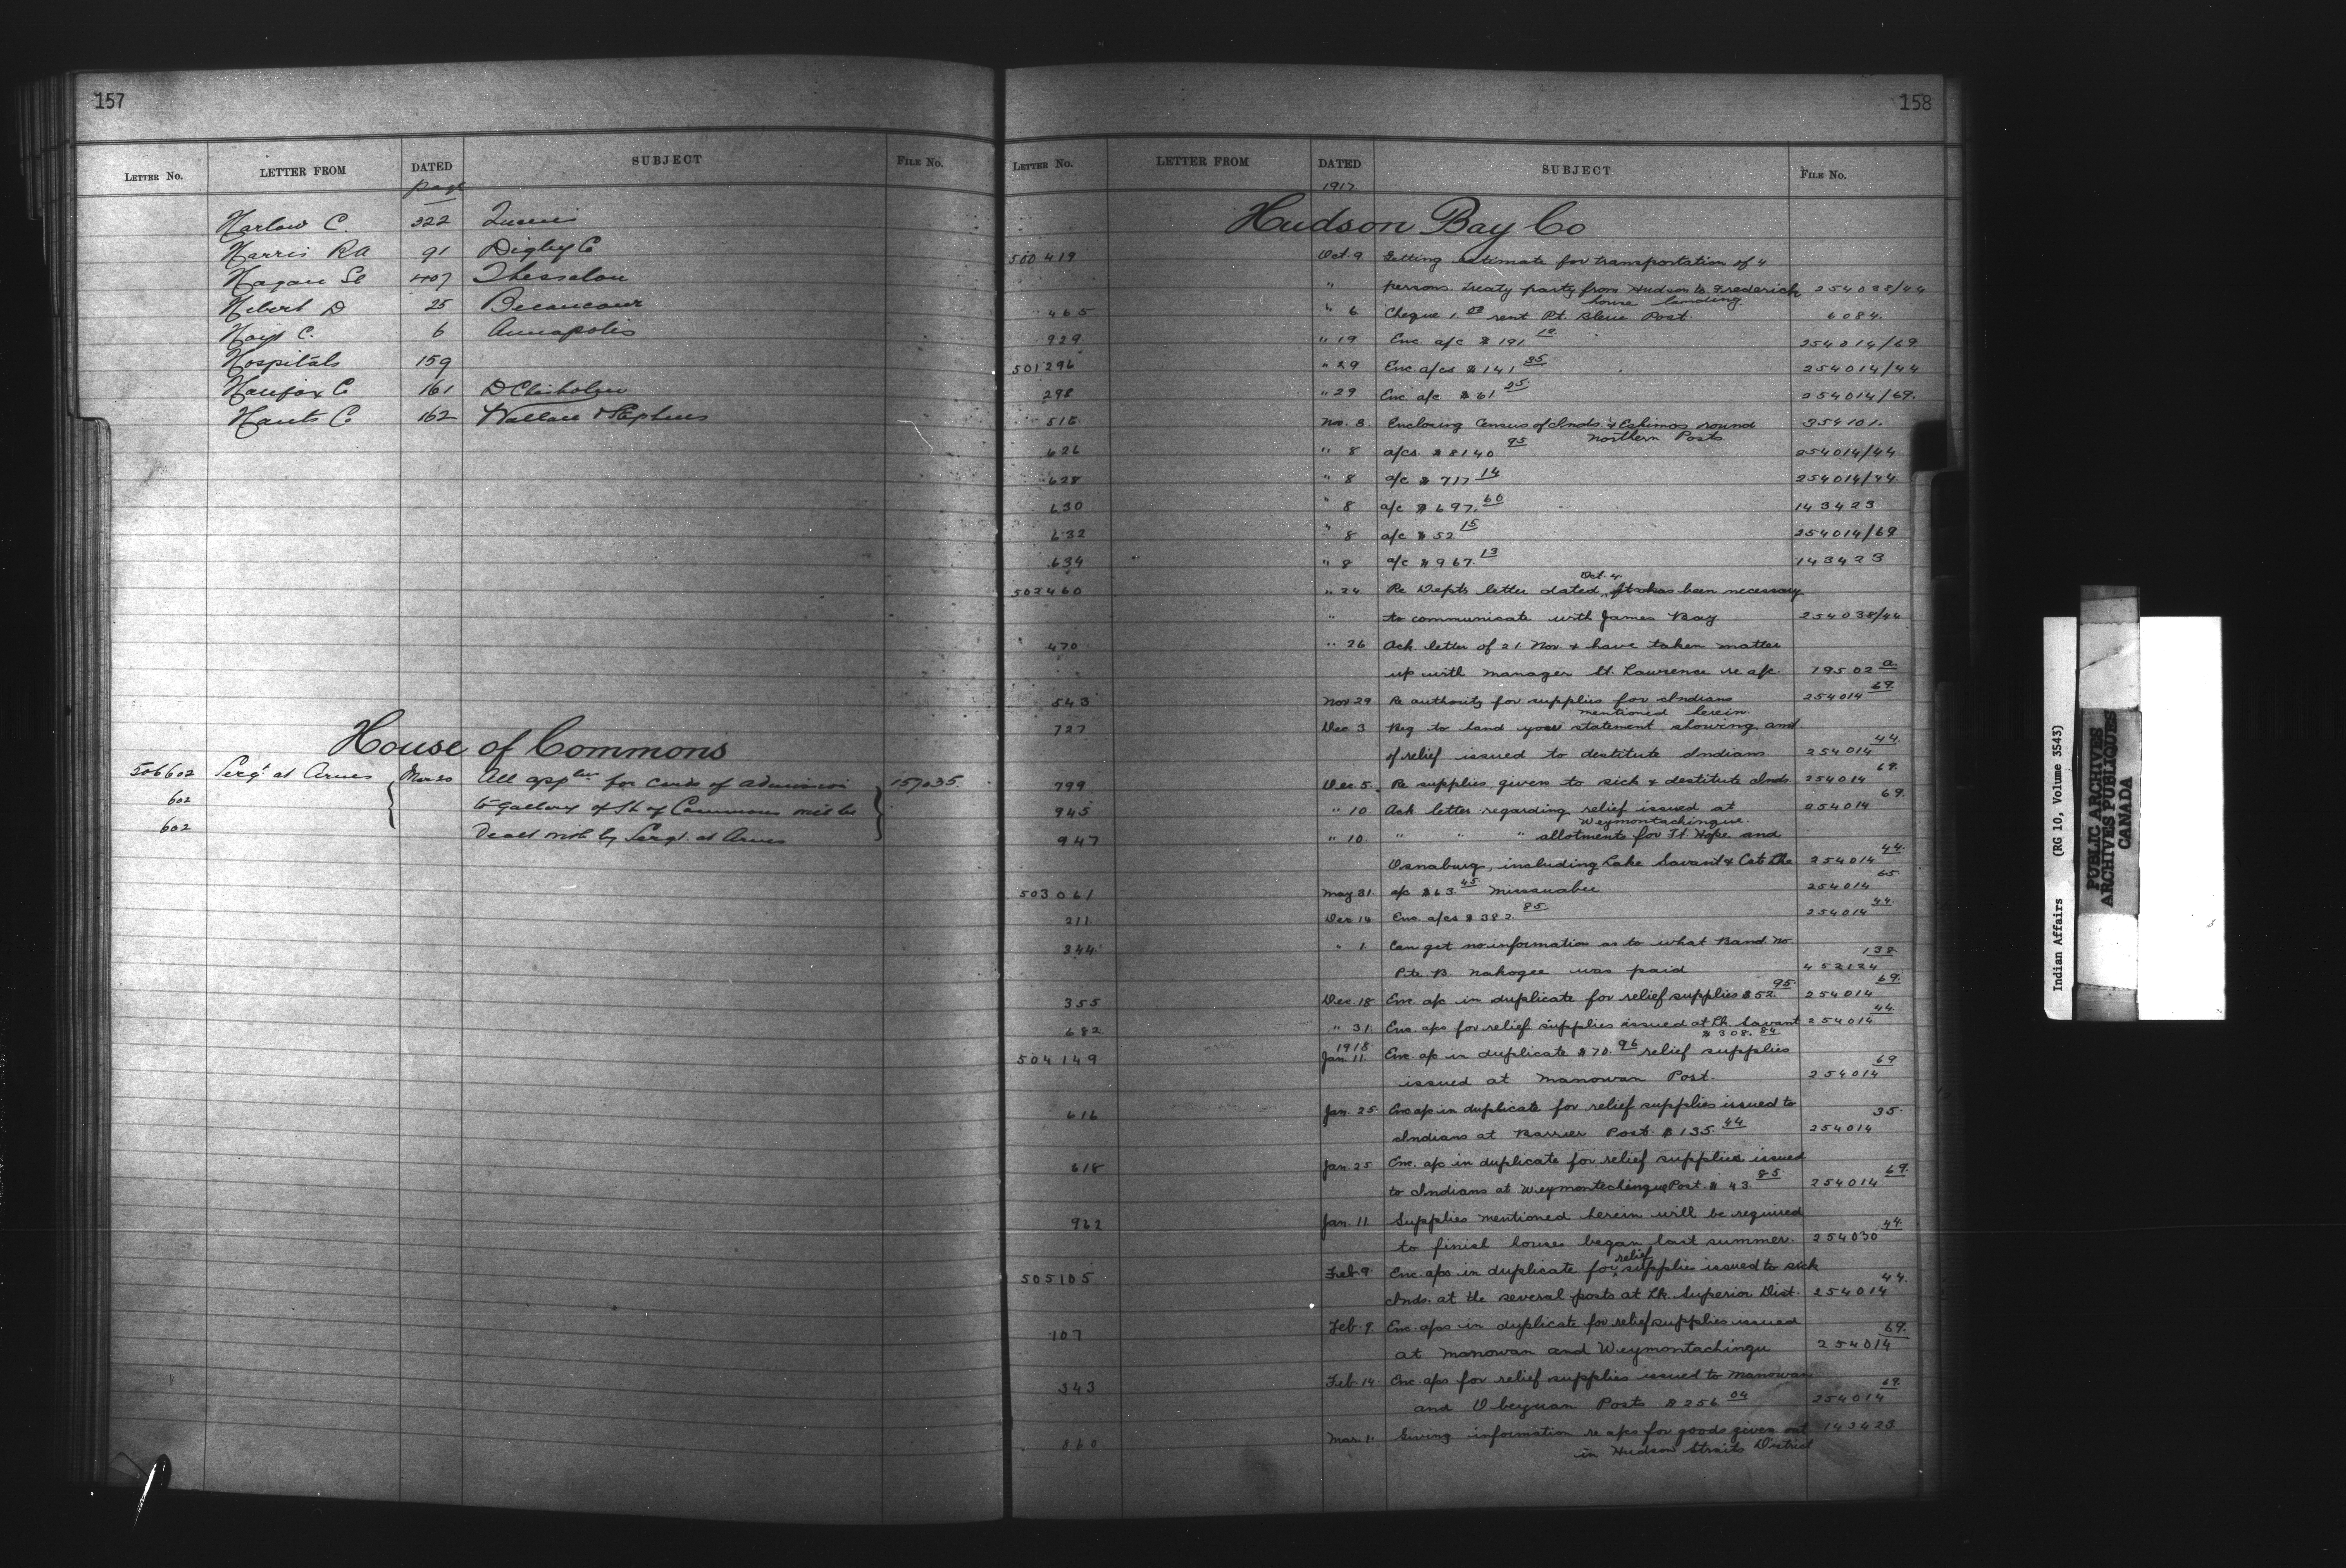 157
LETTER NO. LETTER FROM DATED SUBJECT FILE NO.
page
Harlow C. 322 Queens
Harris R A 91 Digby C
Hagan Sl 407 Thessalon
Hebert D 25 Becancour
Hoyt C. 6 Annapolis
Hospitals 159
Halifax C 161 D Chisholm
Hants C 162 Wallace & Stephens
House of Commons
506602 Sergt at Arms Mar 20 All appltns for cards of admission 157035.
602 to gallery of H. of Commons must be
602 Dealt with by Sergt. at Arms
158
LETTER NO. LETTER FROM DATED SUBJECT FILE NO.
1917
Hudson Bay Co
500419 Oct. 9 Getting estimate for transportation of 4
" persons. treaty party from Hudson to Frederick 254038/44
house landing.
465 " 6 Cheque 1.00 rent Pt. Bleue Post. 6084.
929 " 19 Enc. a/c $191 10 254014/69
501296 " 29 Enc a/cs $141 35 254014/44
298 " 29 Enc a/c $61 25 254014/69.
516 Nov. 3. Enclosing Census of Inds. & Eskimos round 354101.
Northern Posts
626 " 8 a/cs. $8140 95 254014/44
628 " 8 a/c $717 14 254014/44.
630 " 8 a/c $697. 60 143423
632 " 8 a/c $52 15 254014/69
634 " 8 a/c $967. 13 143423
Oct. 4.
502460 " 24 Re Depts letter dated, it has been necessary
" to communicate with James Bay 254038/44
470 " 26 Ack. letter of 21 Nov & have taken matter
up with manager St. Lawrence re a/c. 19502 a
543 Nov 29 Re authority for supplies for Indians 254014 69.
mentioned herein.
727 Dec 3 Beg to hand you statement showing amt
of relief issued to destitute Indians 254014 44.
799 Dec. 5. Re supplies given to sick & destitute Inds. 254014 69.
945 " 10 Ack letter regarding relief issued at 254014 69.
Weymontachingue.
947 " 10. " " " allotments for Ft. Hope and
Osnaburg, including Lake Savant & Cat Lke 254014 44.
503061 May 31. a/c $63. 45. Missanabie 254014 65.
211 Dec 14 Enc. a/cs $382. 85. 254014 44.
344 " 1. Can get no information as to what Band no.
Pte. B. Nahogee was paid 452124 138.
355 Dec. 18 Enc. a/c in duplicate for relief supplies $52. 95 254014 69.
682 " 31. Enc. a/cs for relief supplies issued at Lk. Savant 254014 44.
$308. 84
1918
504149 Jan. 11. Enc. a/c in duplicate $70. 96 relief supplies
issued at Manowan Post. 254014 69
616 Jan. 25. Enc a/c in duplicate for relief supplies issued to
Indians at Barrier Post. $135. 44 254014 35.
618 Jan. 25 Enc. a/c in duplicate for relief supplies issued
to Indians at Weymontachingue Post. $43. 85 254014 69.
962 Jan. 11. Supplies mentioned herein will be required
to finish house began last summer. 254030 44.
relief
505105 Feb. 9. Enc. a/cs in duplicate for supplies issued to sick
Inds. at the several posts at Lk. Superior Dist. 254014 44.
107 Feb. 9. Enc. a/cs in duplicate for relief supplies issued
at Manowan and Weymontachingu 254014 69.
343 Feb. 14. Enc. a/cs for relief supplies issued to Manowan
and Obeyuan Posts $256 04 254014 69.
860 Mar. 1. Giving information re a/cs for goods given out 143423
in Hudson Straits District
Indian Affairs (RG 10, Volume 3543)
PUBLIC ARCHIVES
ARCHIVES PUBLIQUES
CANADA